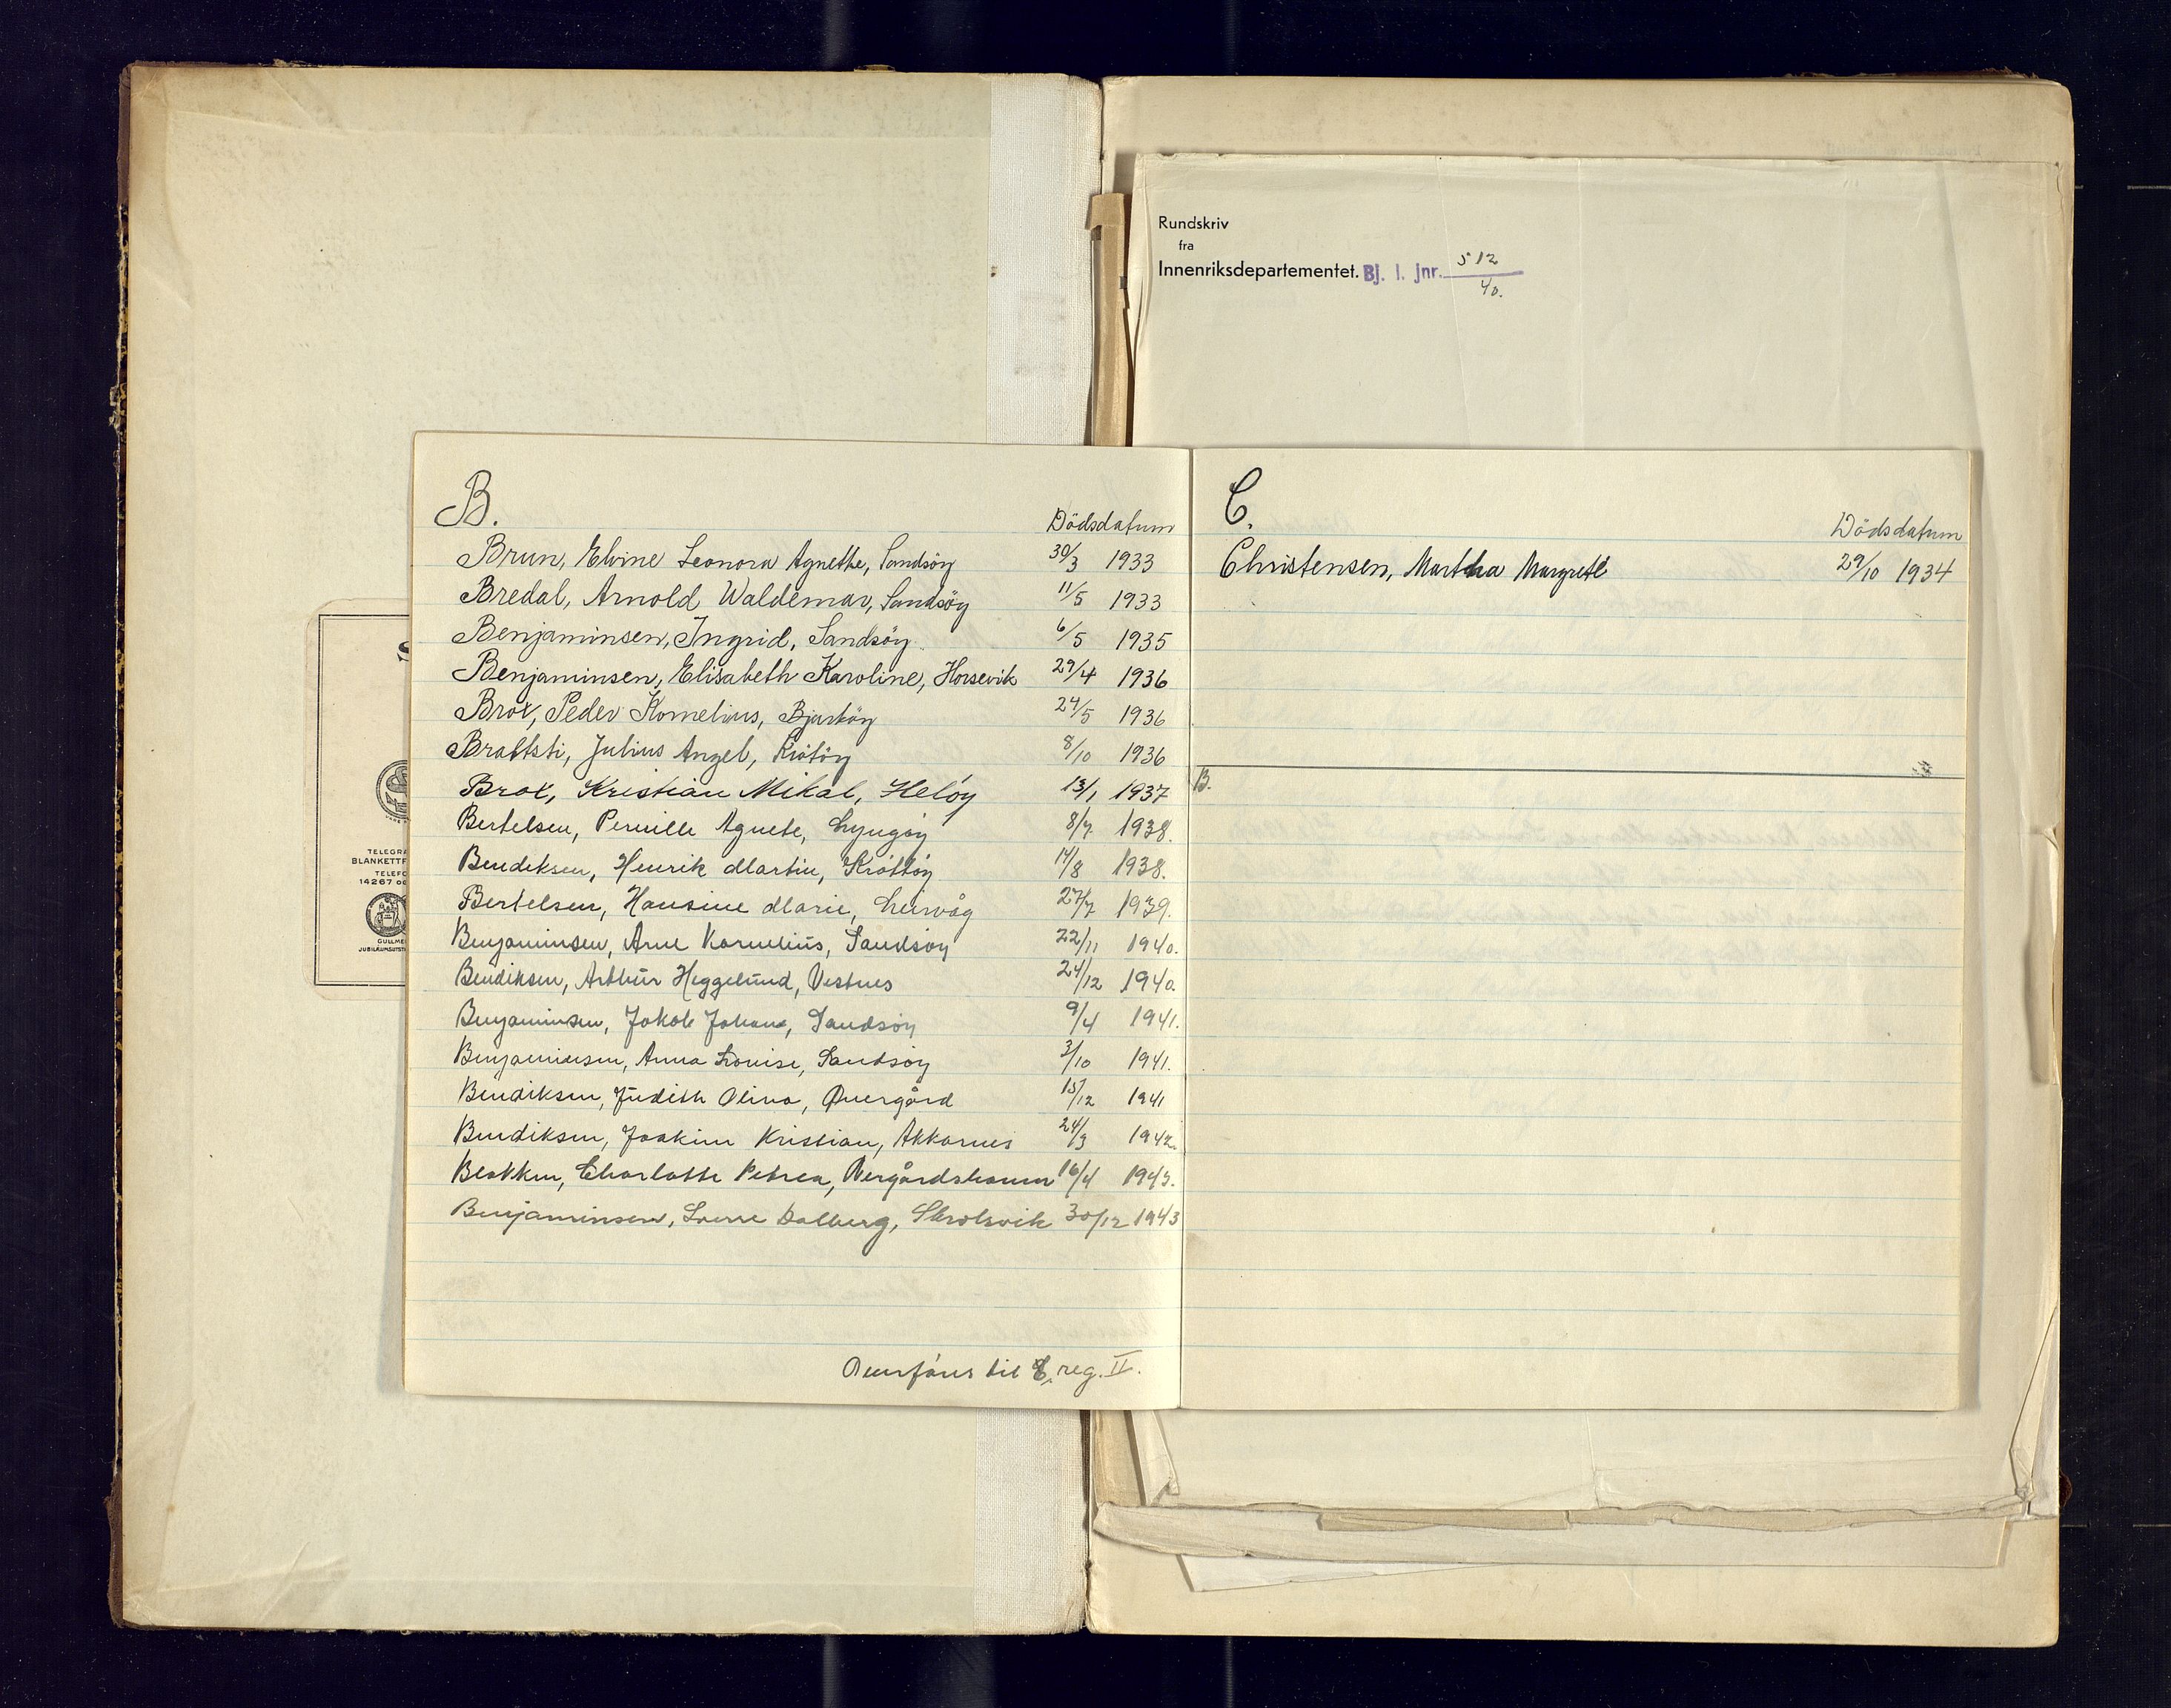 Rundskriv
fra
Innenriksdepartementet. Bj. l. jnr. 512
40.
S
TELEGRA
BLANKETTF
TELEFO
14267 oc
GULLME
JUBILEUMSUTST
B.
Dödsdatum
Brun, Elvine Leonora Agnethe, Sandsöy 30/3 1933
Bredal, Arnold Waldemar, Sandsöy 11/5 1933
Benjaminsen, Ingrid, Sandsöy 6/5 1935
Benjaminsen, Elisabeth Karoline, Horsevik 29/4 1936
Brox, Peder Kornelius, Bjarköy 24/5 1936
Brattsti, Julius Angel, Krötöy 8/10 1936
Brox, Kristian Mikal, Helöy 13/1 1937
Bertelsen, Pernille Agnete, Lyngöy 8/7 1938.
Bendiksen, Henrik Martin, Kröttöy 14/8 1938.
Bertelsen, Hansine Marie, Leirvåg 27/7 1939.
Benjaminsen, Arne Kornelius, Sandsöy 22/11 1940.
Bendiksen, Arthur Heggelund, Vestnes 24/12 1940.
Benjaminsen, Jakob Johan, Sandsöy 9/4 1941.
Benjaminsen, Anna Lovise, Sandsöy 3/10 1941.
Bendiksen, Judith Olina, Övergård 15/12 1941
Bendiksen, Joakim Kristian, Akkarnes 24/3 1942.
Blekken, Charlotte Petrea, Övergårdshamn 16/4 1943.
Benjaminsen, Sverre Dalberg, Skrolsvik 30/12 1943
Overföres til C, reg. II.
C.
Dödsdatum
Christensen, Martha Margrete 29/10 1934
B.